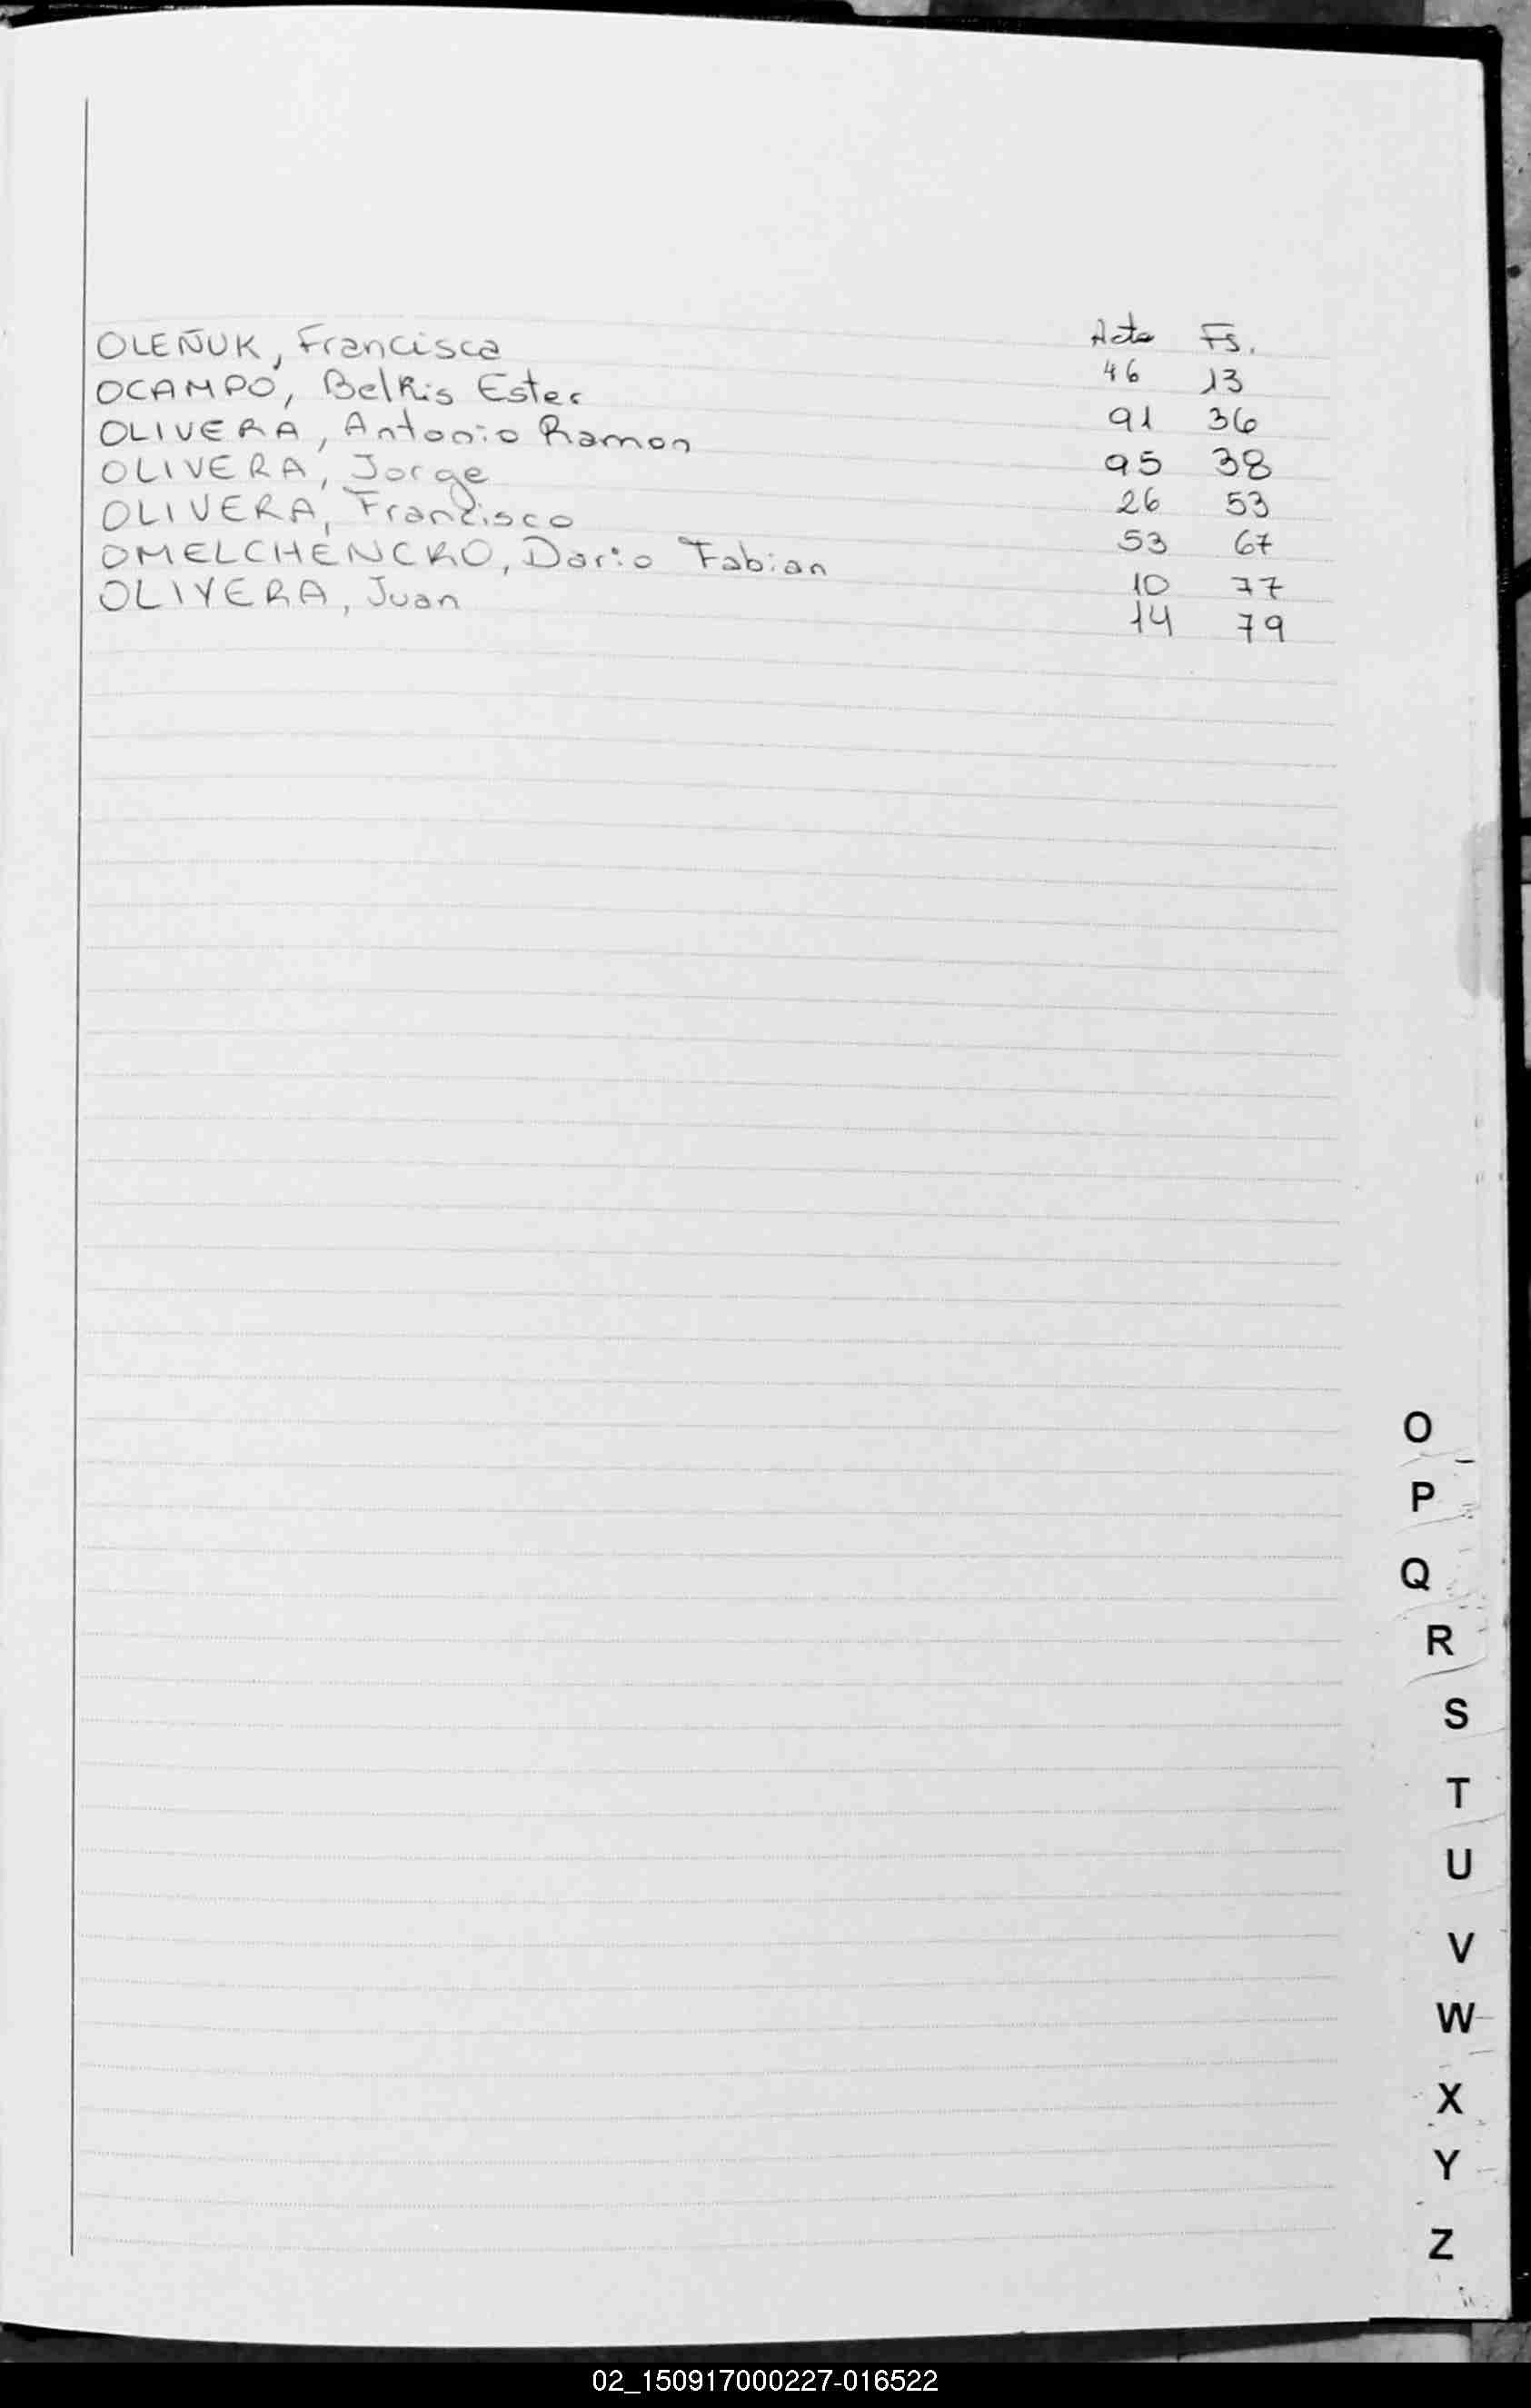 Acta Fs.
OLEÑUK, Francisca 46 13
OCAMPO, BelKis Ester 91 36
OLIVERA, Antonio Ramon 95 38
OLIVERA, Jorge 26 53
OLIVERA, Francisco 53 67
OMELCHENCKO, Dario Fabian 10 77
OLIVERA, Juan 14 79
O
P
Q
R
S
T
U
V
W
X
Y
Z
02_150917000227-016522